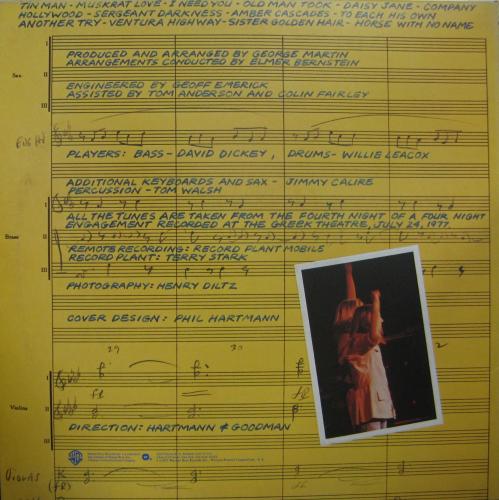 TIN MAN - MUSKRAT LOVE - I NEED YOU - OLD MAN TOOK - DAISY JANE - COMPANY
HOLLYWOOD - SERGEANT DARKNESS - AMBER CASCADES - TO EACH HIS OWN
ANOTHER TRY - VENTURA HIGHWAY - SISTER GOLDEN HAIR - HORSE WITH NO NAME
I
PRODUCED AND ARRANGED BY GEORGE MARTIN
ARRANGEMENTS CONDUCTED BY ELMER BERNSTEIN
II
ENGINEERED BY GEOFF EMERICK
ASSISTED BY TOM ANDERSON AND COLIN FAIRLEY
III
PLAYERS: BASS - DAVID DICKEY, DRUMS - WILLIE LEACOX
ADDITIONAL KEYBOARDS AND SAX - JIMMY CALIRE
PERCUSSION - TOM WALSH
I
ALL THE TUNES ARE TAKEN FROM THE FOURTH NIGHT OF A FOUR NIGHT
ENGAGEMENT RECORDED AT THE GREEK THEATRE, JULY 24, 1977.
II
REMOTE RECORDING: RECORD PLANT MOBILE
RECORD PLANT: TERRY STARK
III
PHOTOGRAPHY: HENRY DILTZ
COVER DESIGN: PHIL HARTMANN
29 30 2
I
Violins
II
DIRECTION: HARTMANN & GOODMAN
III
VIOLAS